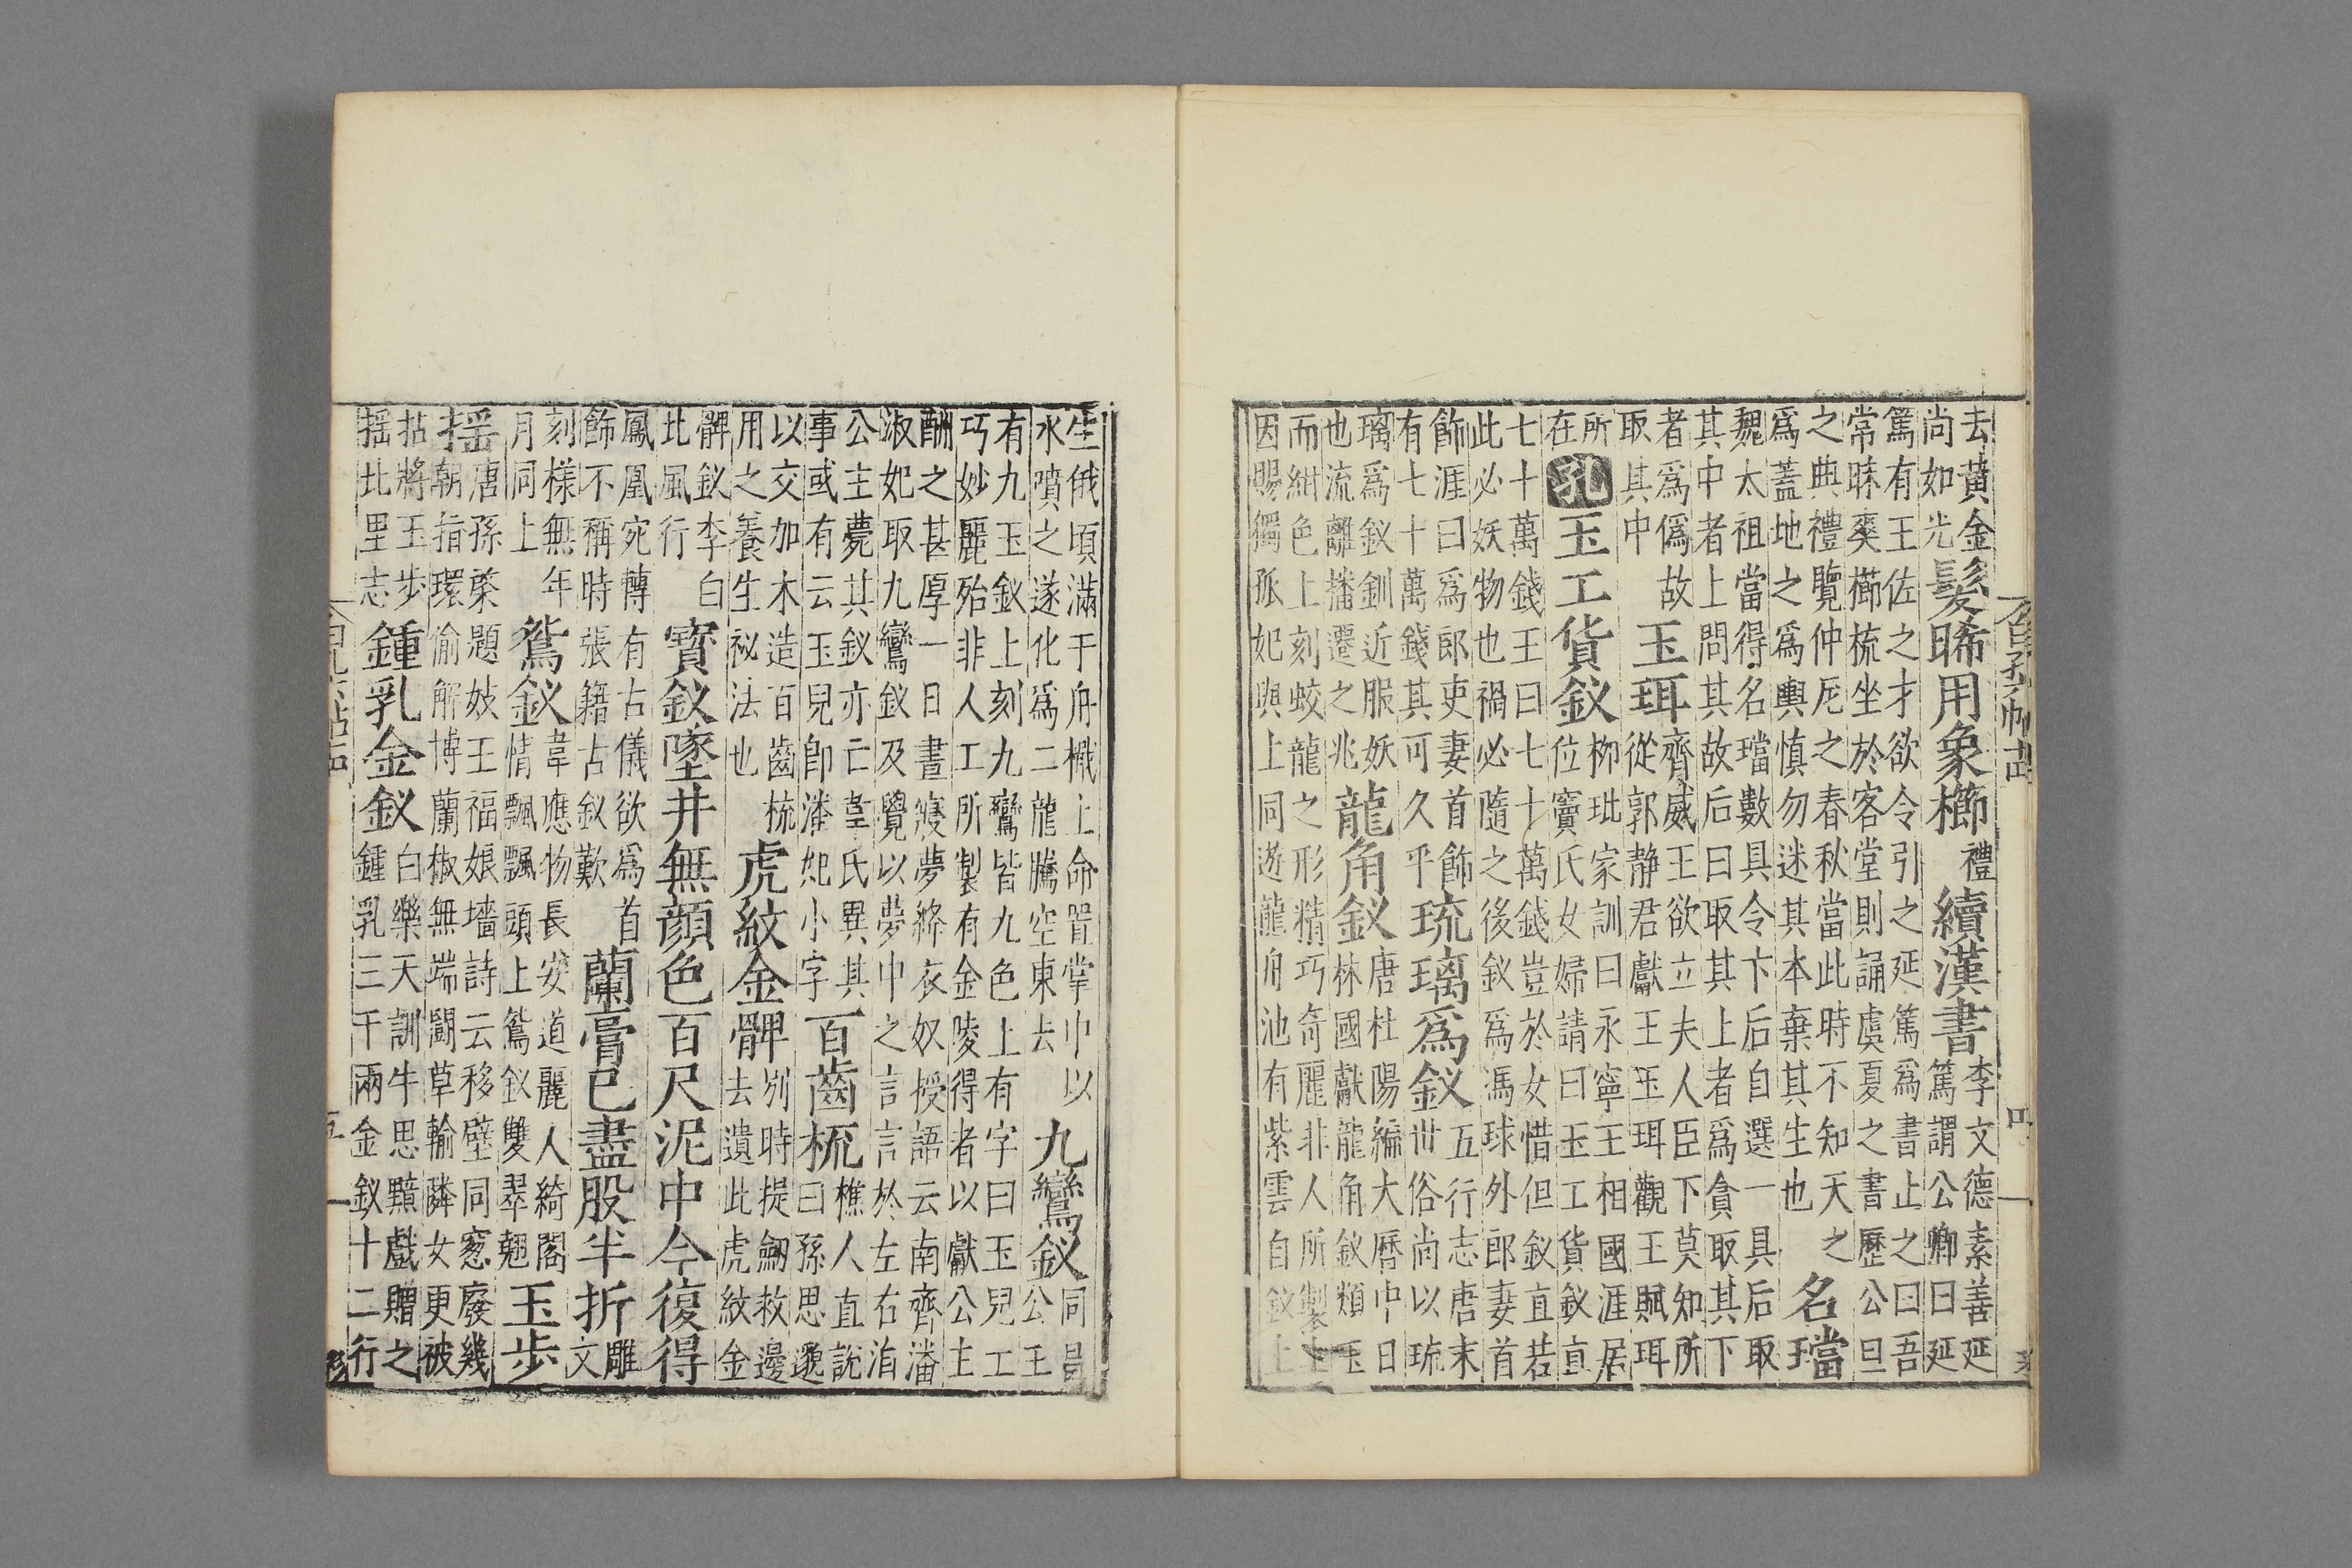 去黃金
尚如光
髮晞用象櫛
禮
續漢書
李文德素善延
篤謂公卿曰延
篤有王佐之才欲令引之延篤爲書止之曰吾
常昧爽櫛梳坐於客堂則誦虞夏之書歷公旦
之典禮覽仲尼之春秋當此時不知天之
爲蓋地之爲輿慎勿迷其本棄其生也
名璫
魏太祖當得名璫數具令卞后自選一具后取
其中者上問其故后曰取其上者爲貪取其下
者爲僞故
取其中
玉珥
齊威王欲立夫人臣下莫知所
從郭靜君獻王玉珥觀王賦珥
所
在
孔
玉工貨釵
柳玭家訓曰永寧王相國涯居
位竇氏女婦請曰玉工貨釵直
七十萬錢王曰七十萬錢豈於女惜但釵直若
此必妖物也禍必隨之後釵爲馮球外郎妻首
飾涯曰爲郎吏妻首飾
有七十萬錢其可久乎
琉璃爲釵
五行志唐末
世俗尚以琉
璃爲釵釧近服妖
也流離播遷之兆
龍角釵
唐杜陽編大曆中日
林國獻龍角釵類玉
而紺色上刻蛟龍之形精巧奇麗非人所製上
因賜獨孤妃與上同遊龍舟池有紫雲自釵上
生俄頃滿于舟檝上命置掌中以
水噴之遂化爲二龍騰空東去
九鸞釵
同昌
公王
有九玉釵上刻九鸞皆九色上有字曰玉兒工
巧妙麗殆非人工所製有金陵得者以獻公主
酬之甚厚一日晝寢夢絳衣奴授語云南齊潘
淑妃取九鸞釵及覺以夢中之言言於左右洎
公主薨其釵亦亡韋氏異其
事或有云玉兒卽潘妃小字
百齒梳
樵人直說
曰孫思邈
以交加木造百齒梳
用之養生祕法也
虎紋金髀
別時提劒救邊
去遺此虎紋金
髀釵李白
北風行
寶釵墜井無顔色百尺泥中今復得
鳳凰宛轉有古儀欲爲首
飾不稱時張籍古釵歎
蘭膏已盡股半折
雕
文
刻樣無年
月同上
鴛釵
韋應物長安道麗人綺閣
情飄飄頭上鴛釵雙翠翹
玉步
搖
唐孫棨題妓王福娘墻詩云移壁同窻廢幾
朝指環偷解博蘭椒無端鬭草輸鄰女更被
拈將玉步
搖北里志
鍾乳金釵
白樂天訓牛思黯戲贈之
鍾乳三千兩金釵十二行